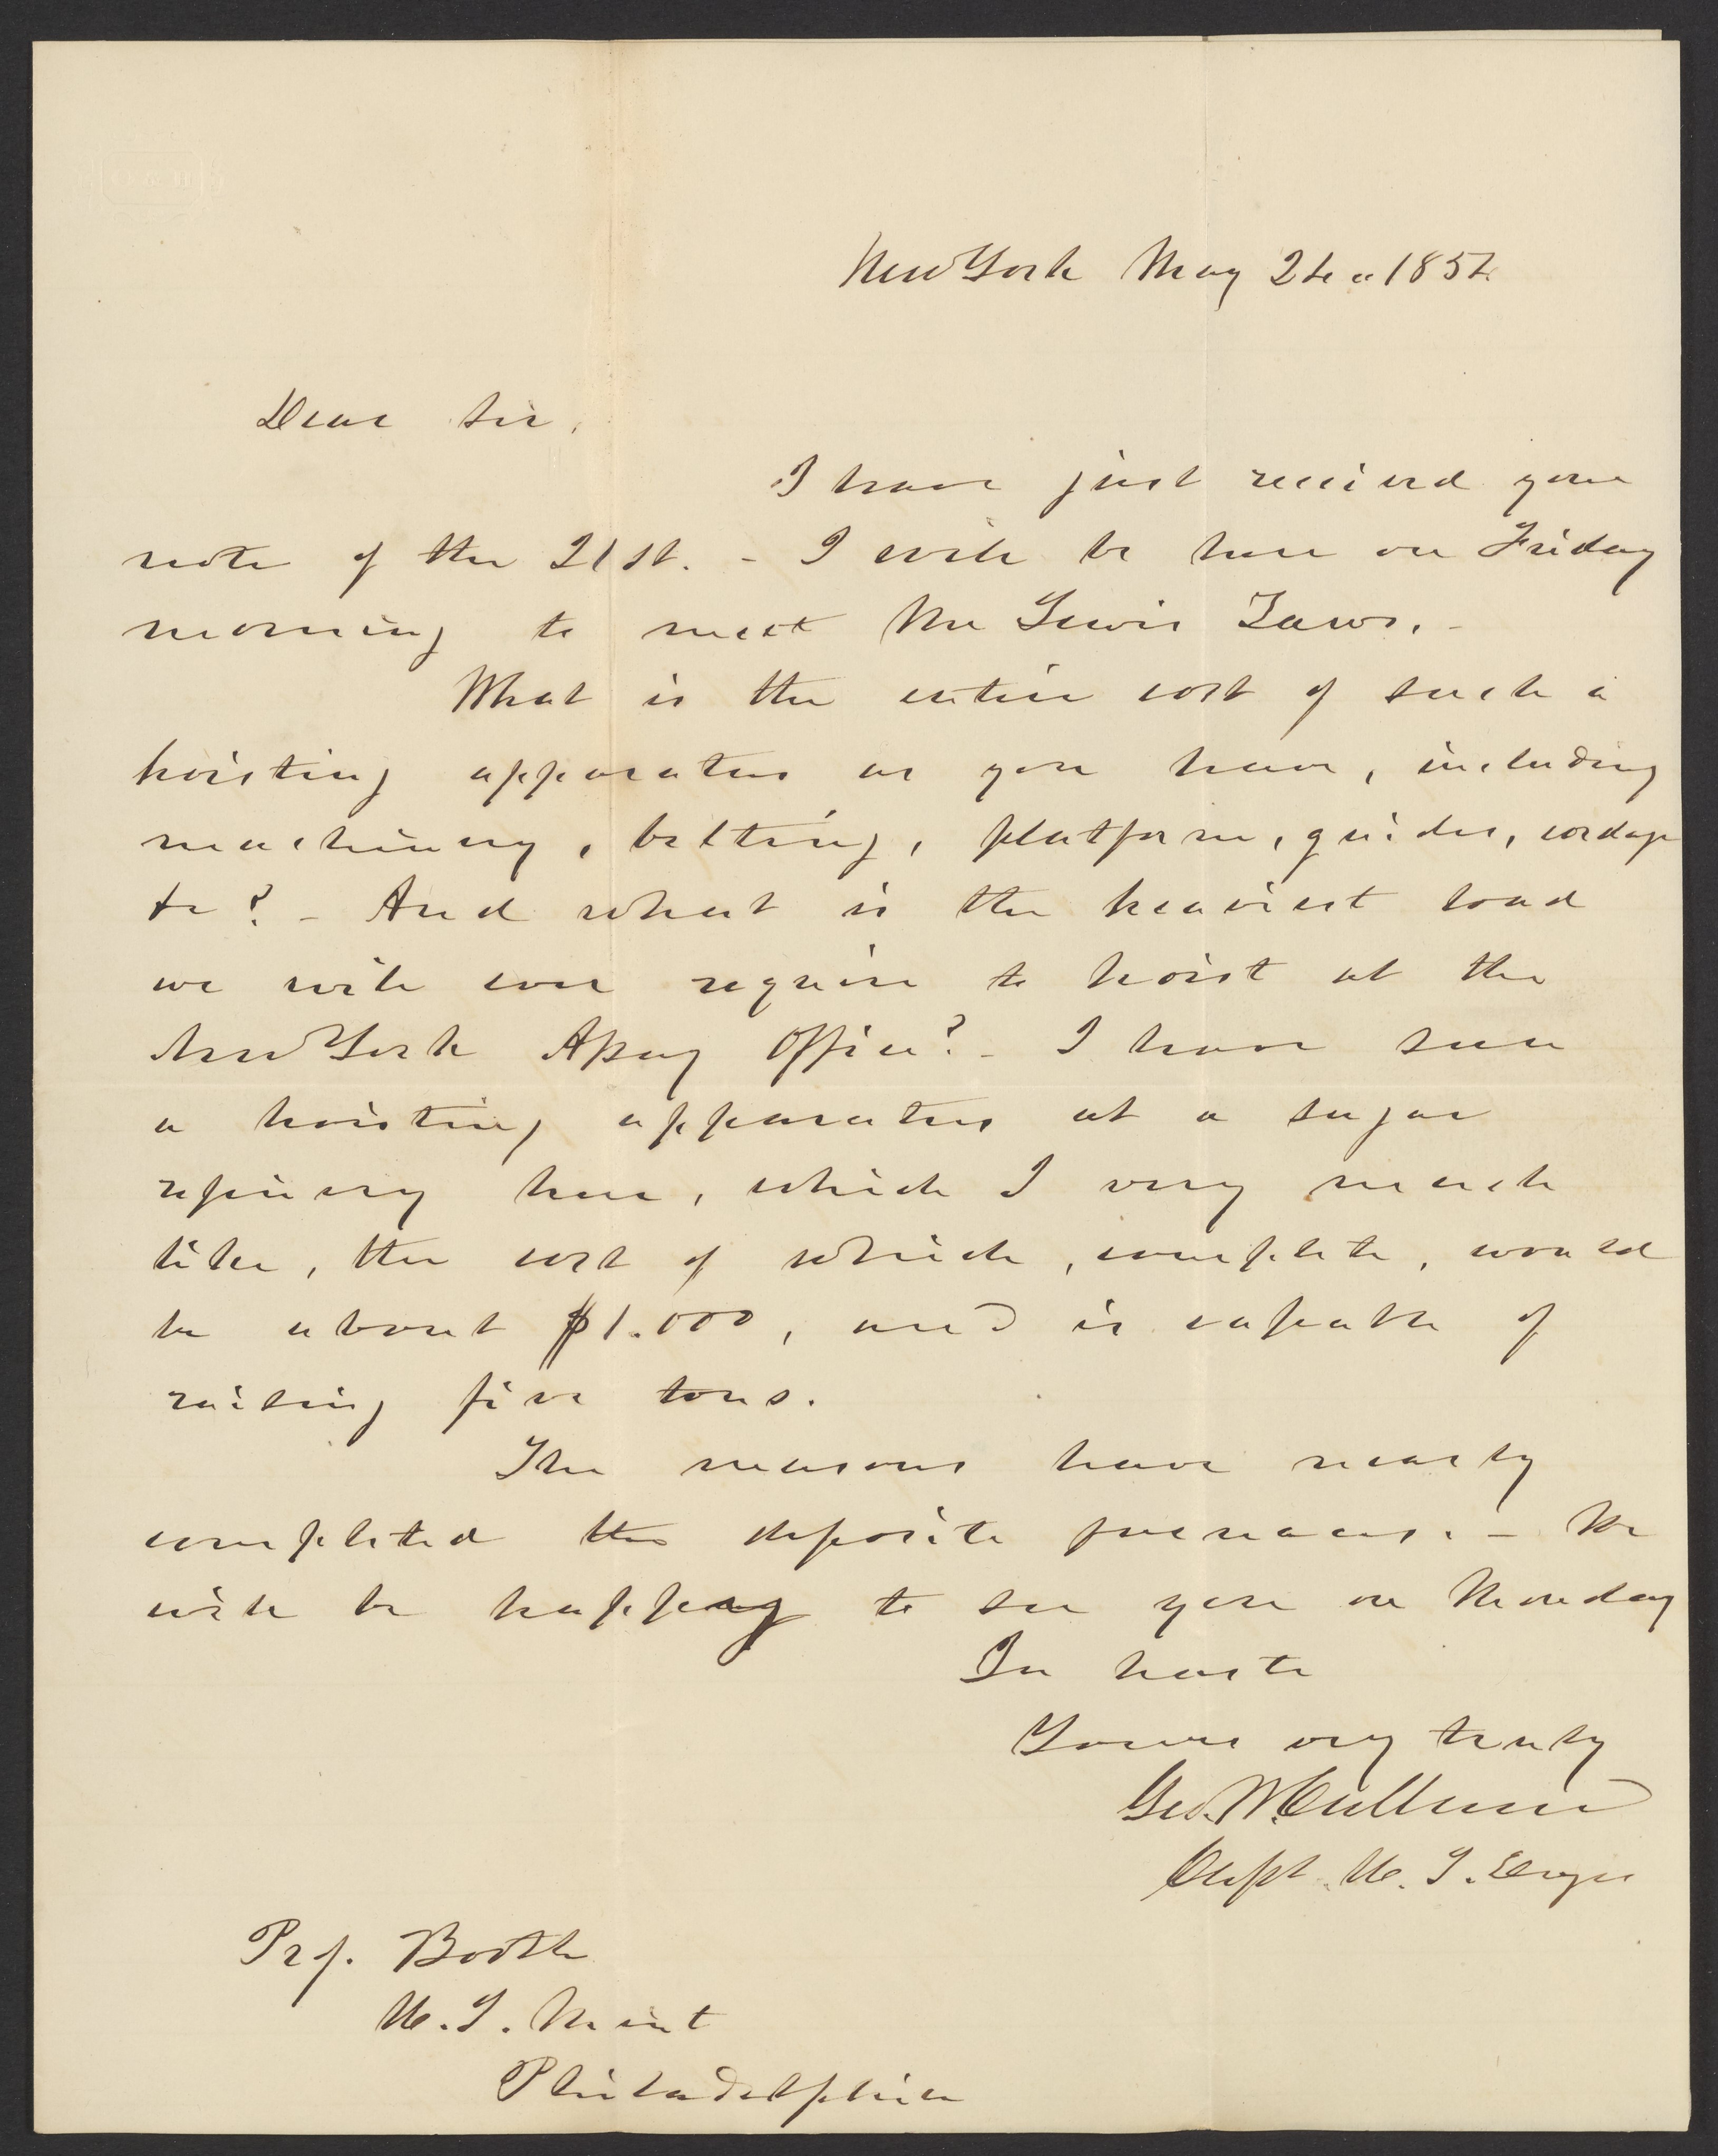 New York May 24 " 1854
Dear Sir,
I have just received your
note of the 21st. - I will be here on Friday
morning to meet Mr Lewis Laws. -
What is the entire cost of such a
hoisting apparatus as you have, including
machinery, belting, platform, guides, cordage
&c? - And what is the heaviest load
we will ever require to hoist at the
New York Assay Office? - I have seen
a hoisting apparatus at a sugar
refinery here, which I very much
like, the cost of which, complete, would
be about $1.000, and is capable of
raising five tons.
The masons have nearly
completed the deposite furnaces. - We
will be happy to see you on Monday
In haste
Yours very truly
Geo. W. Cullum
Capt. U. S. Engrs
Prf. Booth
U. S. Mint
Philadelphia